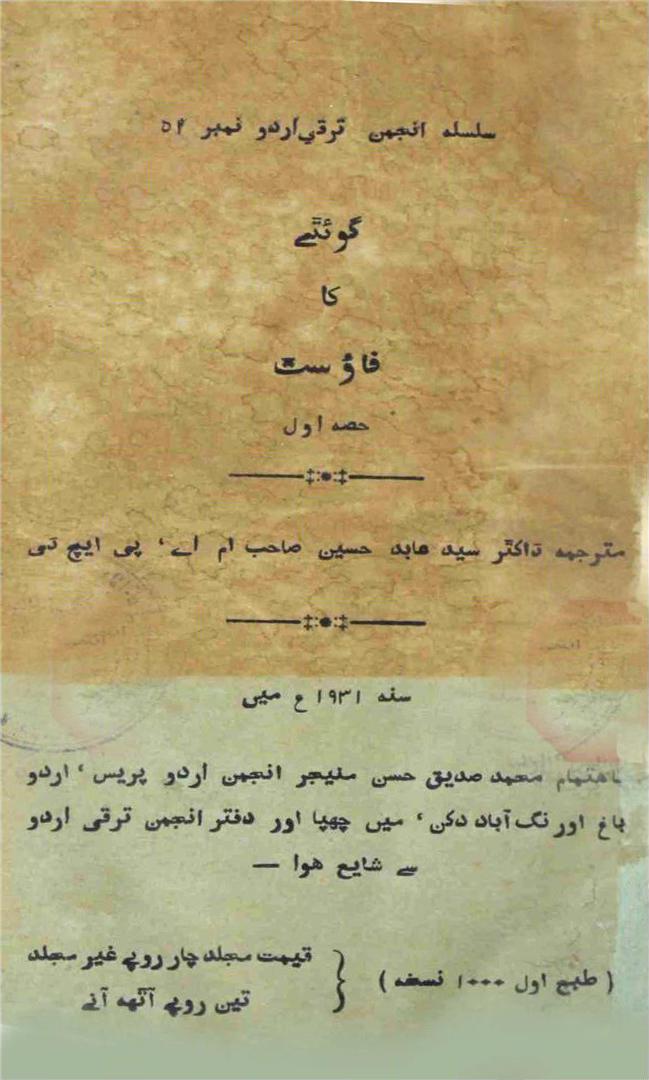 سلسله انجمن ترقیِ اردو نمبر ۵۴
گوئٹے
کا
فاؤسٹ
حصه اول
مترجمه ڈاکٹر سید عابد حسین صاحب ام اے، پی ایچ ڈی
سنه ۱۹۳۱ ع میں
باهتمام محمد صدیق حسن منیجر انجمن اردو پریس، اردو
باغ اورنگ آباد دکن، میں چھپا اور دفتر انجمن ترقی اردو
سے شایع هوا —
( طبع اول ۱۰۰۰ نسخه ) { قیمت مجلد چار روپے غیر مجلد
تین روپے آٹھه آنے